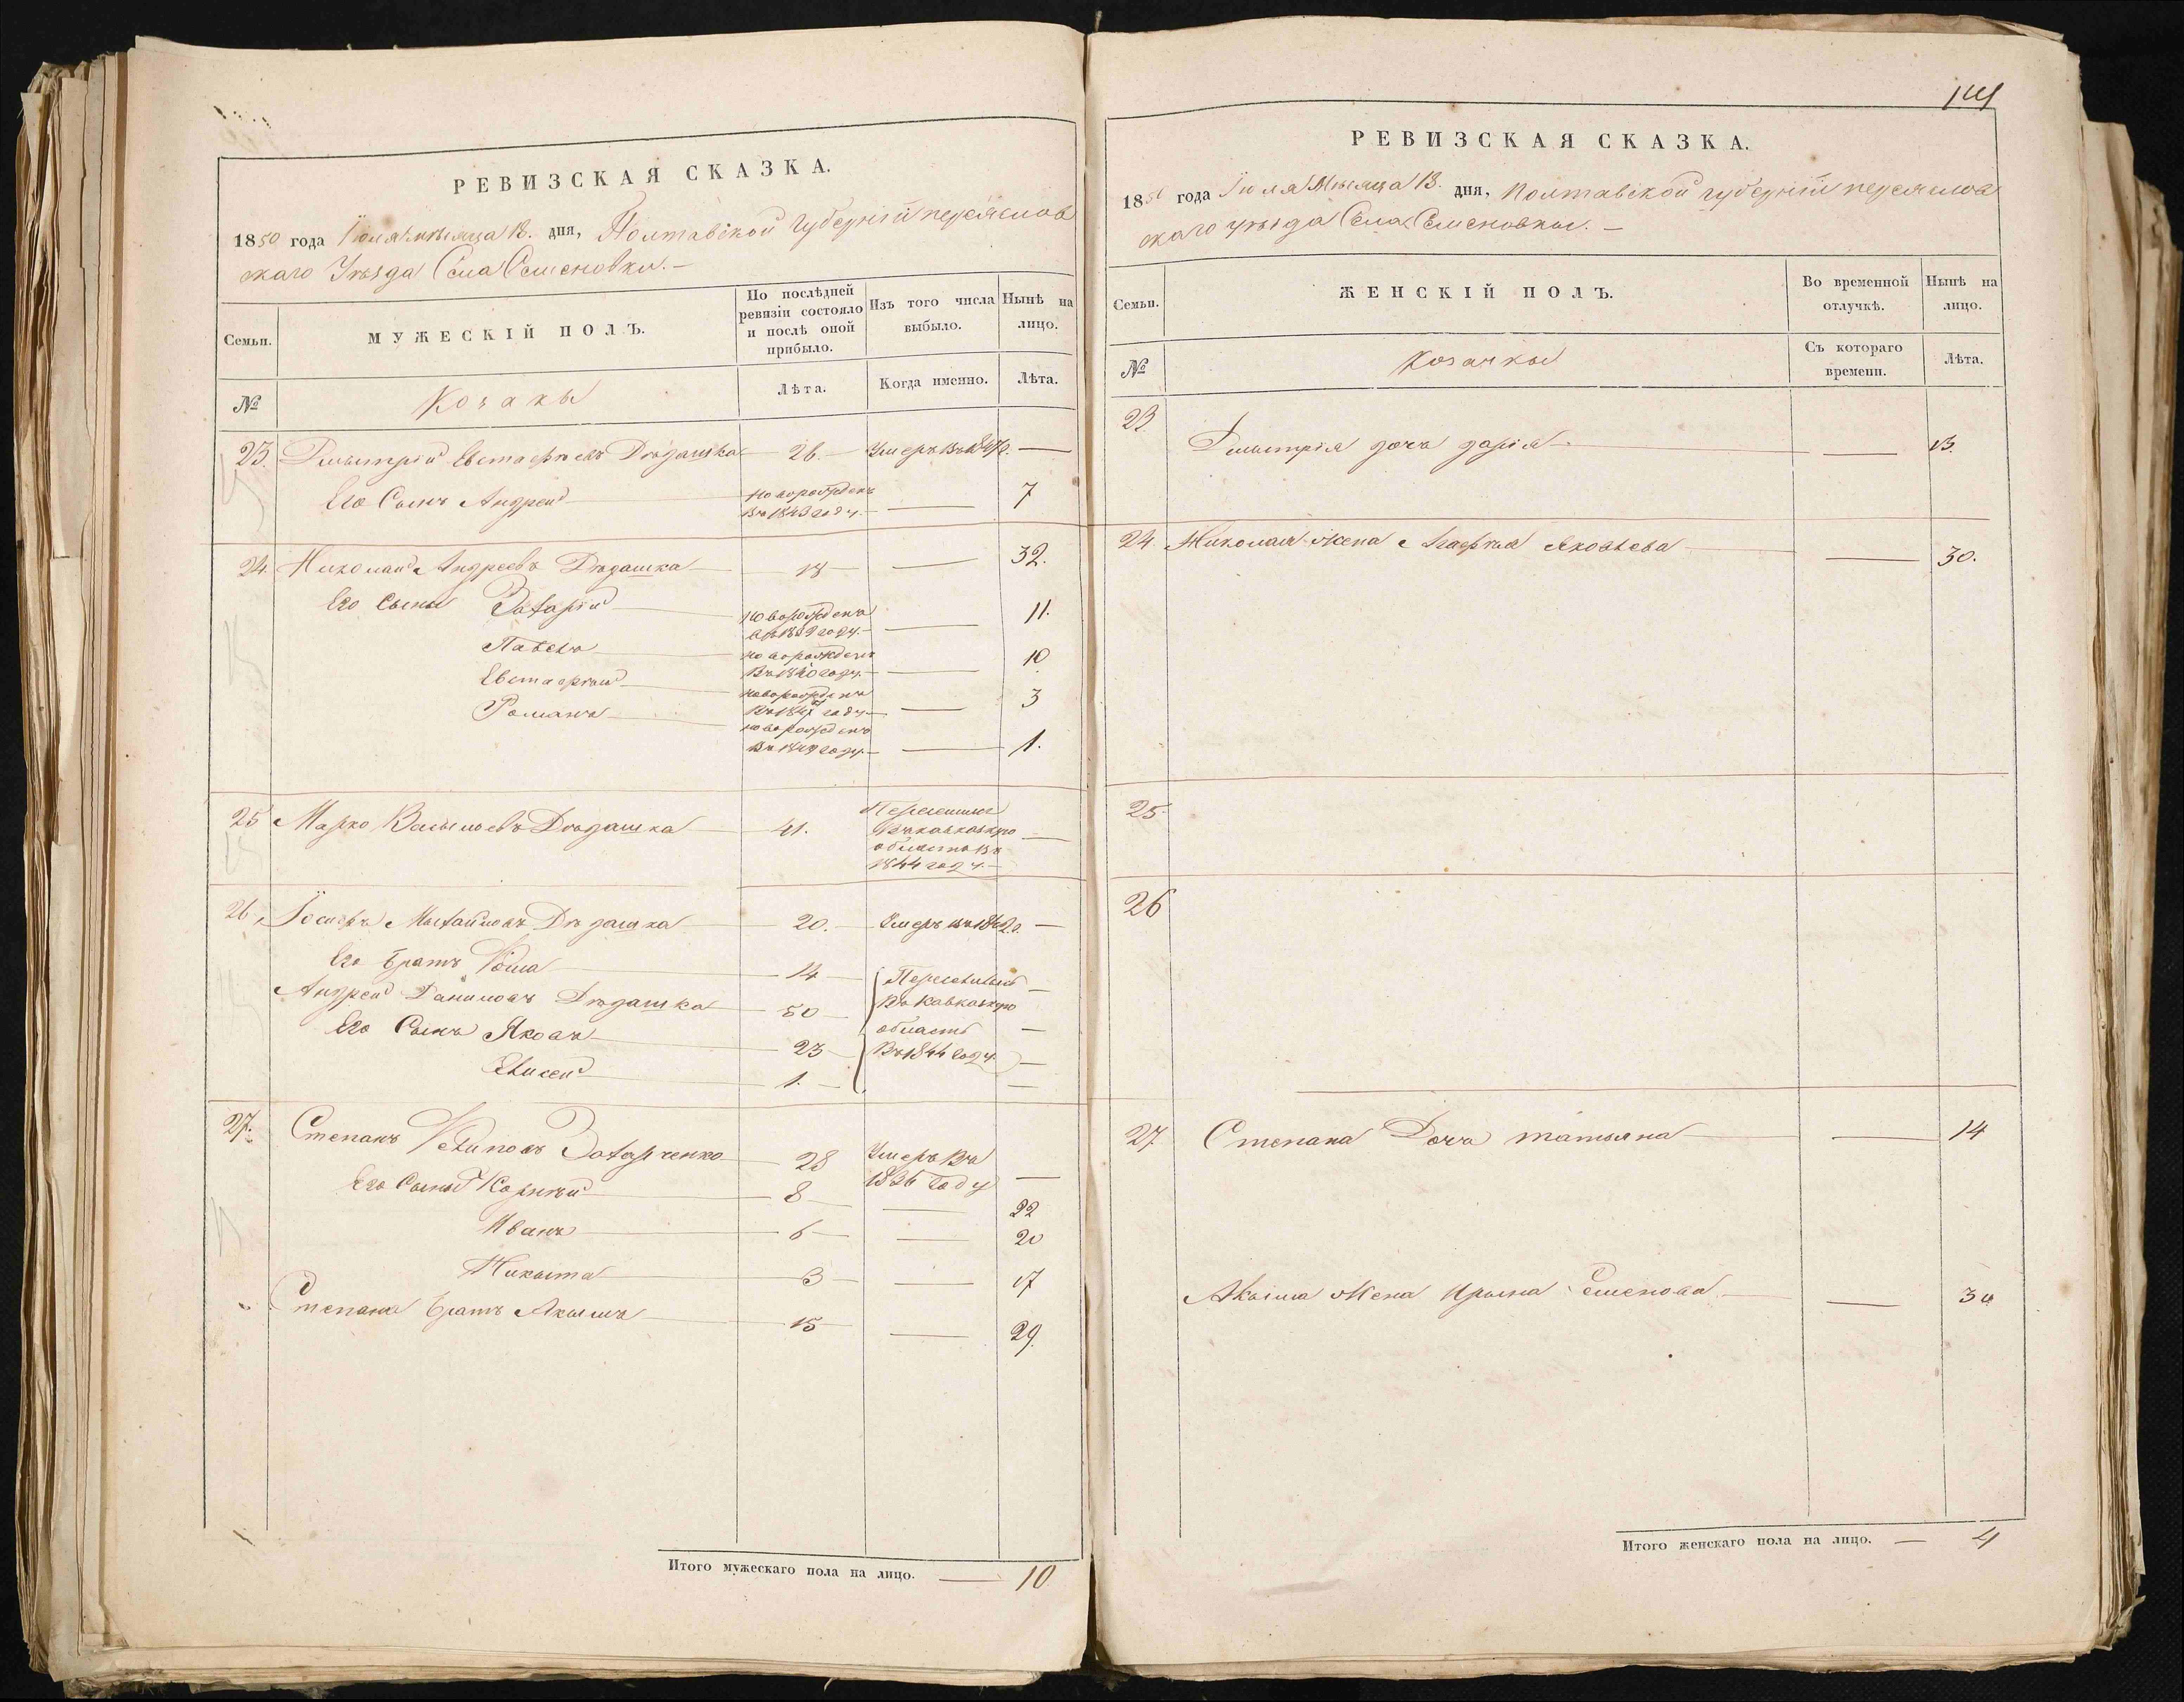 РЕВИЗСКАЯ СКАЗКА.
1850 года Июля месяца 13. дня, Полтавской Губерніи переяслов
скаго Уѣзда Села Семеновки.—
Семьи.
МУЖЕСКІЙ ПОЛЪ.
По послѣдней ревизіи состояло и послѣ оной прибыло.
Изъ того числа выбыло.
Нынѣ на лицо.
№
Козакы
Лѣта.
Когда именно.
Лѣта.
23. Дмытрій Евстафіевъ Дѣдашка 26. Умеръ въ —
Его Сынъ Андрей новорожденъ въ 1843 году. — 7
24. Николай Андреевъ Дѣдашка 18 — 32.
Его Сыны Захарій новорожденъ году. — 11.
Павелъ новорожденъ въ 1840 году. — 10
Евстафій новорожденъ въ 1847 году — 3
Романъ новорожденъ въ 1849 году — 1.
25 Марко Васыльевъ Дѣдашка 41. въ кавказкую область въ 1844 году. —
26 Іосифъ Мыхайловъ Дѣдашка 20. Умеръ —
Его Братъ Фома 14 —
Андрей Даниловъ Дѣдашка 50 въ Кавказкую область —
Его Сынъ Яковъ 23 въ 1844 году —
Елисей 1. —
27. Степанъ Захарченко 28 Умеръ въ 1836 году —
Его Сыны Корнѣй 8 — 22
Иванъ 6 — 20
Никыта 3 — 17
Степана Братъ Акымъ 15 — 29.
Итого мужескаго пола на лицо. — 10
РЕВИЗСКАЯ СКАЗКА.
1850 года Іюля Мѣсяца 13. дня, Полтавской губерніи переяслов
скаго уѣзда Села Семеновкы. —
Семьи.
ЖЕНСКІЙ ПОЛЪ.
Во временной отлучкѣ.
Нынѣ на лицо.
№
Козачкы
Съ котораго времени.
Лѣта.
23. Дмытрія дочь дарія — 13.
24. Николая жена Агафія Яковлева — 30.
25.
26
27 Степана Дочь татьяна — 14
Акыма Жена Ирына Семенова — 30
Итого женскаго пола на лицо. — 4